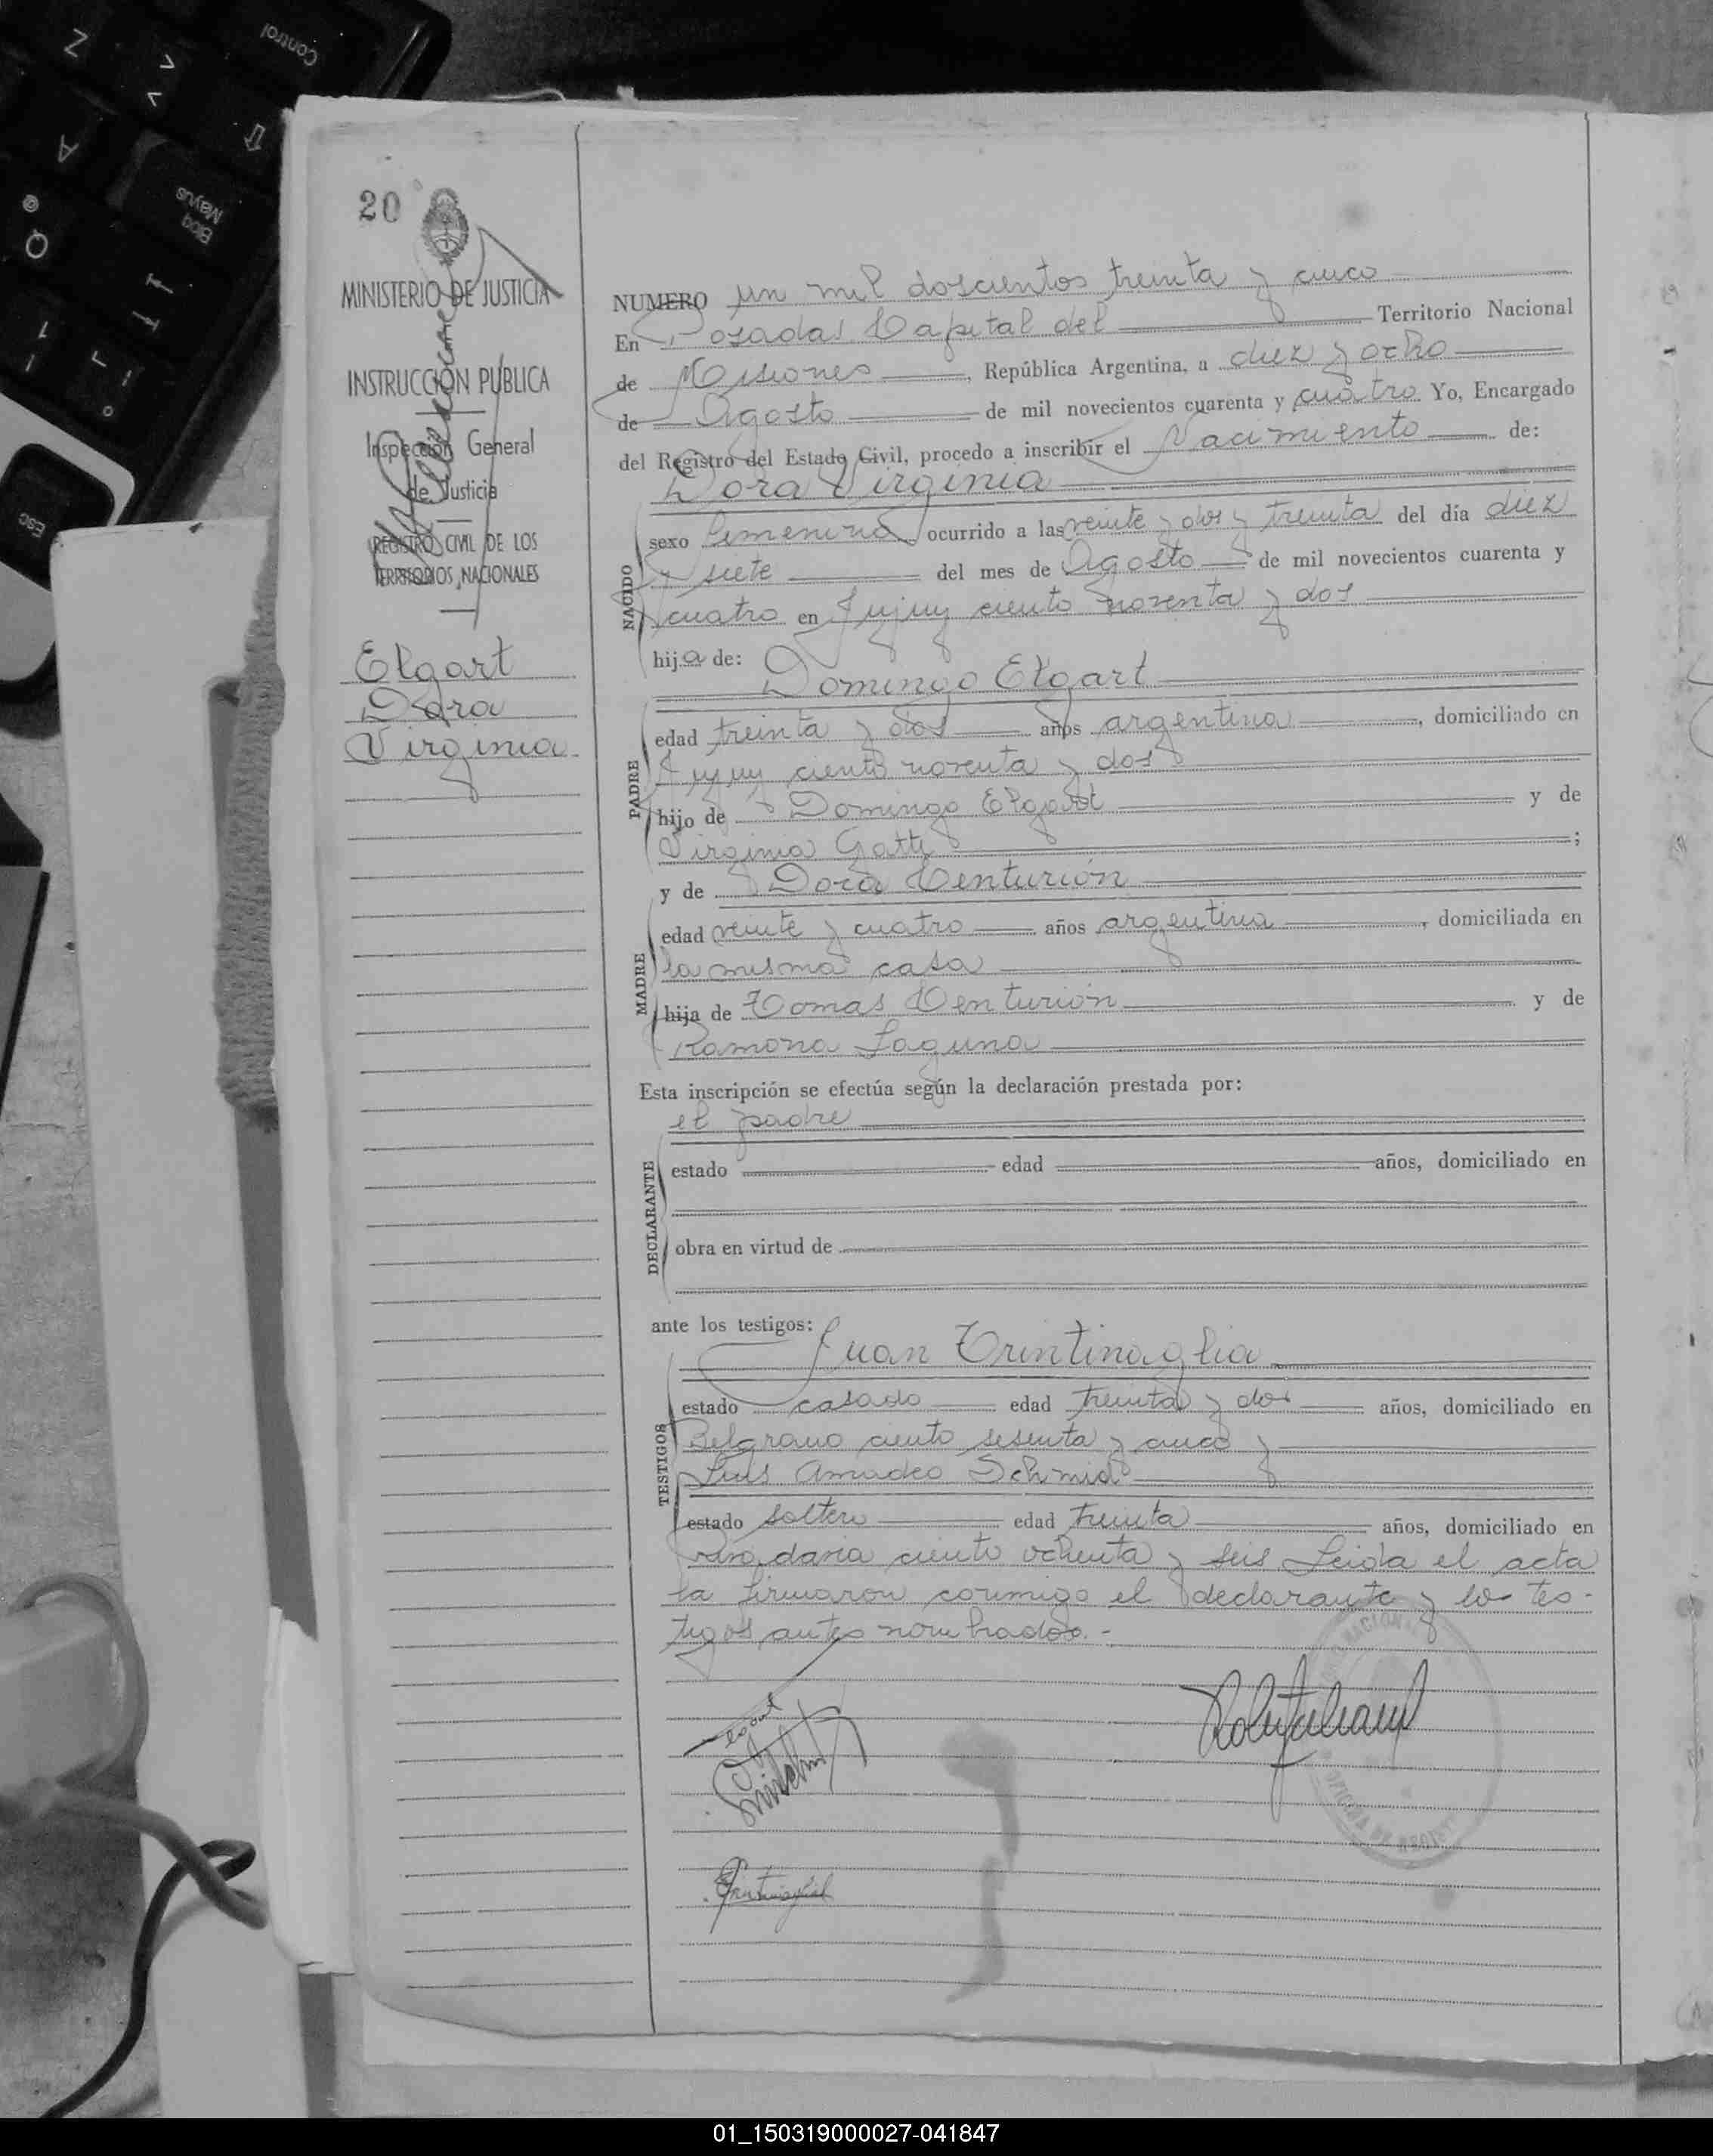 Control
Z
A
Bloq
Mayus
Q
Esc
20
MINISTERIO DE JUSTICIA
INSTRUCCIÓN PÚBLICA
Inspección General
de Justicia
REGISTRO CIVIL DE LOS
TERRITORIOS NACIONALES
Elgart
Dora
Virginia
NUMERO un mil doscientos treinta y cinco
En Posadas Capital del Territorio Nacional
de Misiones, República Argentina, a diez y ocho
de Agosto de mil novecientos cuarenta y cuatro Yo, Encargado
del Registro del Estado Civil, procedo a inscribir el Nacimiento de:
Dora Virginia
NACIDO
sexo femenino ocurrido a las veinte y dos y treinta del día diez
y siete del mes de Agosto de mil novecientos cuarenta y
cuatro en Jujuy ciento noventa y dos
hija de:
Domingo Elgart
PADRE
edad treinta y dos años argentino, domiciliado en
Jujuy ciento noventa y dos
hijo de Domingo Elgart y de
Virginia Gatti;
y de Dora Centurión
MADRE
edad veinte y cuatro años argentina, domiciliada en
la misma casa
hija de Tomas Centurión y de
Ramona Laguna
Esta inscripción se efectúa según la declaración prestada por:
el padre
DECLARANTE
estado edad años, domiciliado en
obra en virtud de
ante los testigos:
Juan Trintinaglia
TESTIGOS
estado casado edad treinta y dos años, domiciliado en
Belgrano ciento sesenta y cinco y
Luis Amadeo Schmid
estado soltero edad treinta años, domiciliado en
Rivadavia ciento ochenta y seis Leida el acta
la firmaron conmigo el declarante y los tes-
tigos antes nombrados.-
01_150319000027-041847